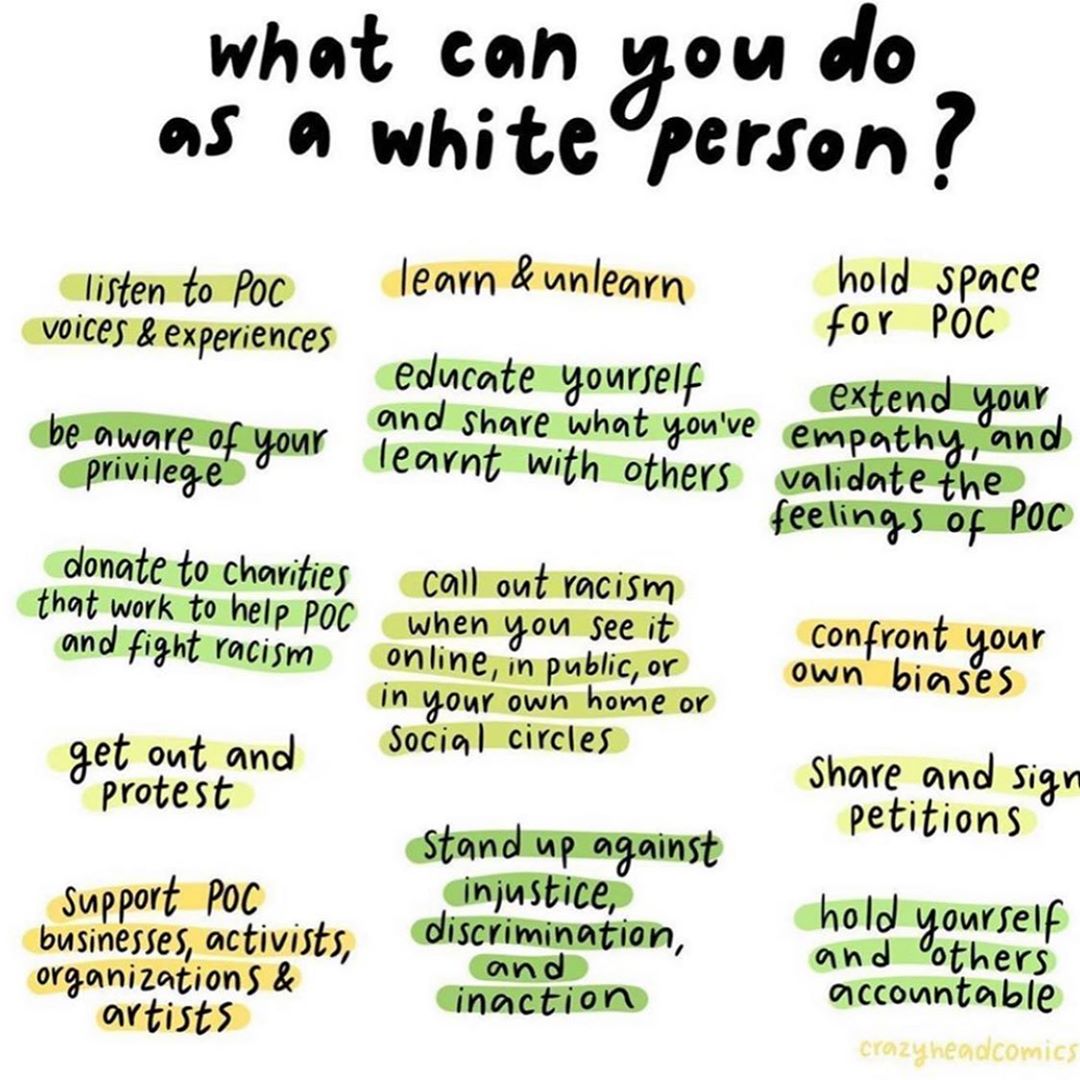 what can you do
as a white person?
listen to POC
voices & experiences
be aware of your
privilege
donate to charities
that work to help POC
and fight racism
get out and
protest
support POC
businesses, activists,
organizations &
artists
learn & unlearn
educate yourself
and share what you've
learnt with others
call out racism
when you see it
online, in public, or
in your own home or
social circles
stand up against
injustice,
discrimination,
and
inaction
hold space
for POC
extend your
empathy, and
validate the
feelings of POC
confront your
own biases
share and sign
petitions
hold yourself
and others
accountable
crazyheadcomics